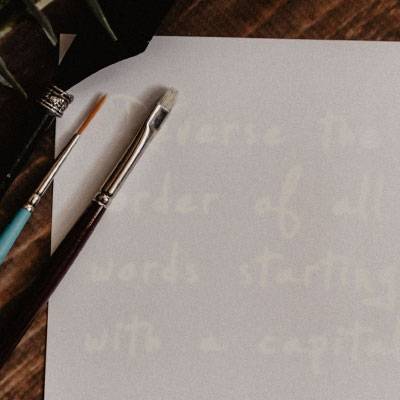 Reverse the
order of all
words starting
with a capital